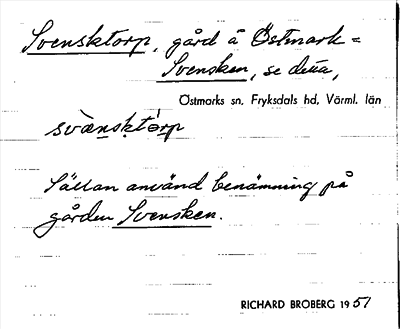 Svensktorp, gård å Östmark=
Svensken, se detta,
Östmarks sn, Fryksdals hd, Värml. län
svànsktórp
Sällan använd benämning på
gården Svensken.
RICHARD BROBERG 1957